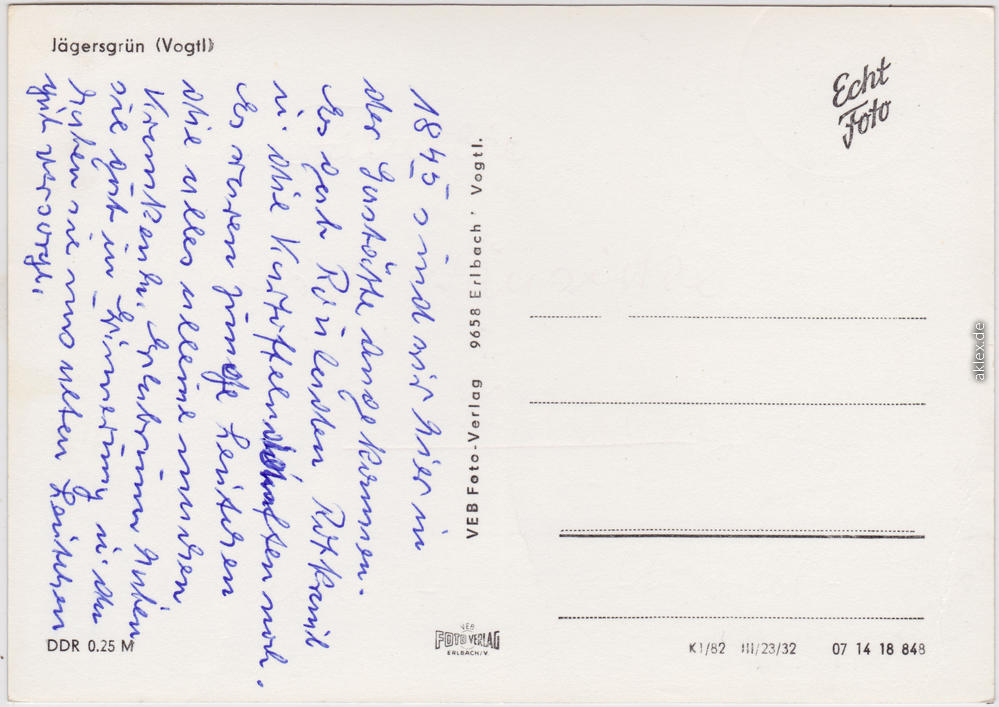 Jägersgrün (Vogtl)
18 45 sind wir hier in
der Gaststätte angekommen.
Es gab Rouladen Rotkraut
u. die Kartoffeln noch.
Es waren junge Leutchen
die alles alleine machen
Kranken haben
sie gut in Erinnerung u. da
haben sie uns alten Leutchen
gut versorgt.
VEB Foto-Verlag 9658 Erlbach' Vogtl.
Echt
Foto
DDR 0.25 M
VEB
FOTO VERLAG
ERLBACH/V.
K1/82 III/23/32 07 14 18 848
aklex.de